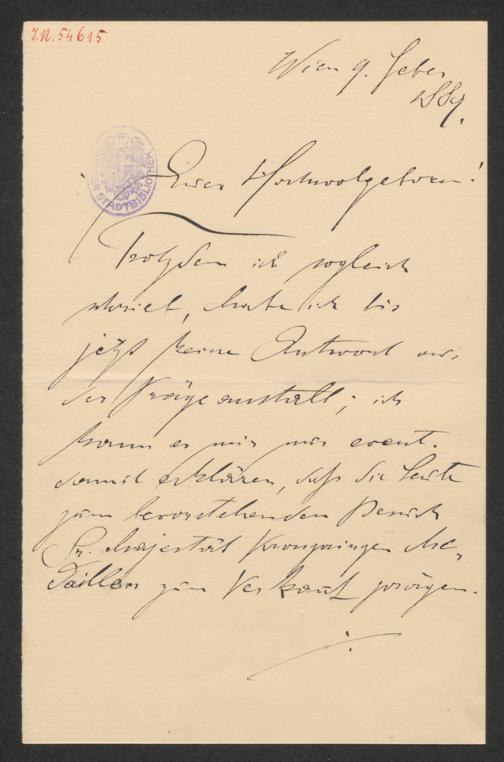 J.N. 54615
Wien 9. Feber
1889.
STADTBIBLIOTHEK
Euer Hochwolgeboren!
Trotzdem ich sogleich
schrieb, habe ich bis
jetzt keine Antwort aus
der Prägeanstalt; ich
kann es mir nur event.
damit erklären, daß die Leute
zum bevorstehenden
Sr. Majestät Kronprinzen Me-
daillen zum Verkauf prägen.